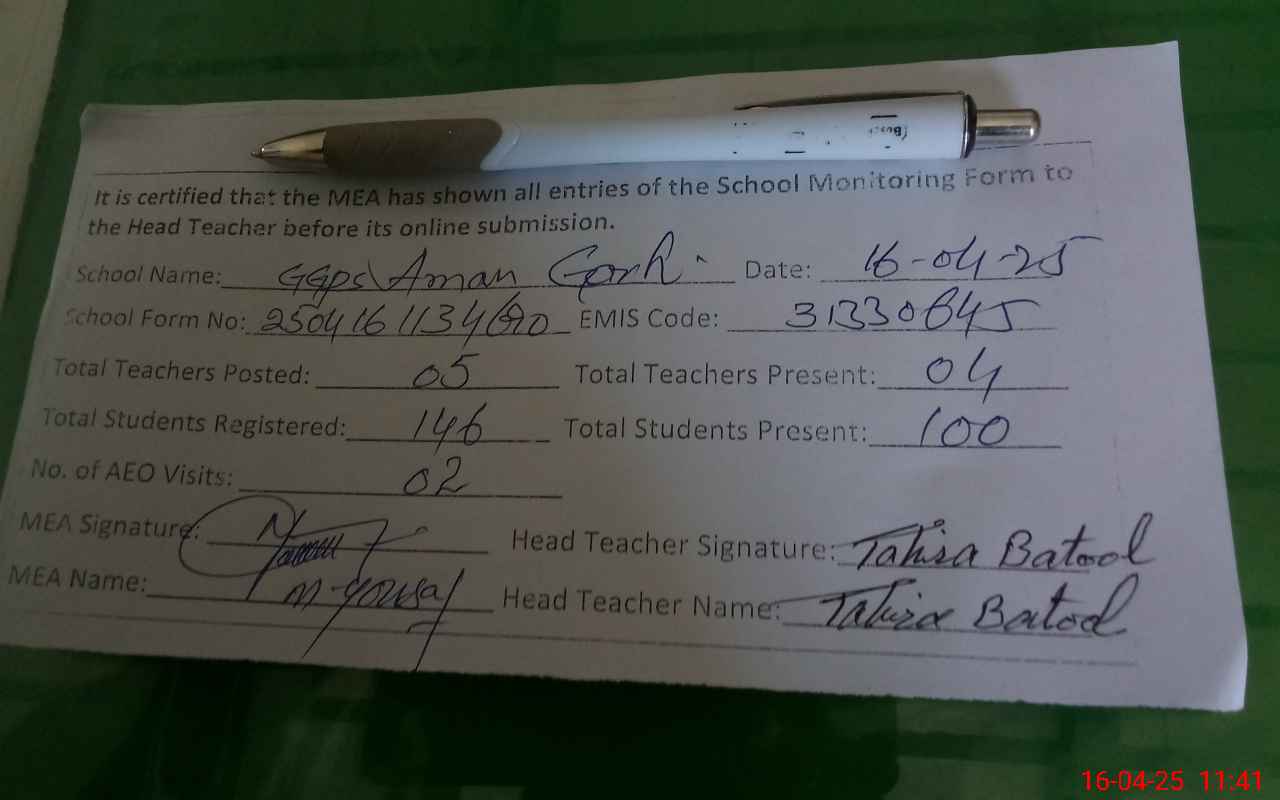 It is certified that the MEA has shown all entries of the School Monitoring Form to
the Head Teacher before its online submission.
School Name: GGPS\ Aman Garh. Date: 16-04-25
School Form No: EMIS Code: 31330645
Total Teachers Posted: 05 Total Teachers Present: 04
Total Students Registered: 146 Total Students Present: 100
No. of AEO Visits: 02
MEA Signature: Head Teacher Signature: Tahira Batool
MEA Name: M-Yousaf Head Teacher Name: Tahira Batool
16-04-25 11:41